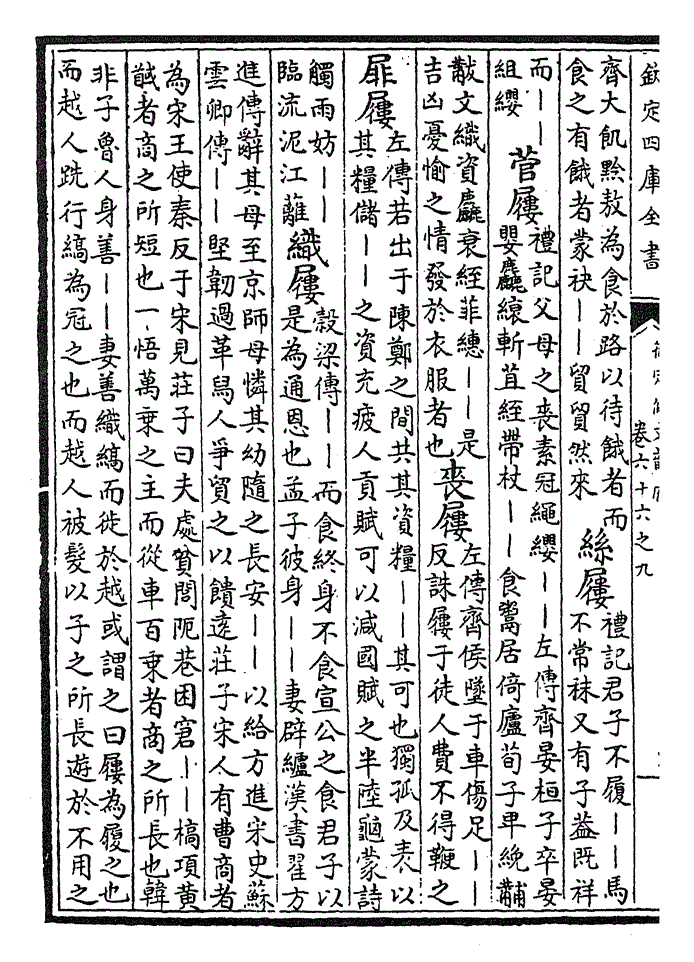 欽定四庫全書
卷六十六之九
齊大飢黔敖為食於路以待餓者而
食之有餓者蒙袂——貿貿然來
絲屨
禮記君子不履——馬
不常秣又有子蓋既祥
而——
組纓
菅屨
禮記父母之喪素冠繩纓——左傳齊晏桓子卒晏
嬰麤縗斬苴絰帶杖——食鬻居倚廬荀子卑絻黼
黻文織資麤衰絰菲繐——是
吉凶憂愉之情發於衣服者也
喪屨
左傳齊侯墜于車傷足——
反誅屨于徒人費不得鞭之
屝屨
左傳若出于陳鄭之間共其資糧——其可也獨孤及表以
其糧儲——之資充疲人貢賦可以減國賦之半陸龜蒙詩
觸雨妨——
臨流泥江蘺
織屨
榖梁傳——而食終身不食宣公之食君子以
是為通恩也孟子彼身——妻辟纑漢書翟方
進傳辭其母至京師母憐其幼隨之長安——以給方進宋史蘇
雲卿傳——堅韌過革舄人爭貿之以饋遠莊子宋人有曹商者
為宋王使秦反于宋見莊子曰夫處貧閭阨巷困窘——槁項黃
馘者商之所短也一悟萬乗之主而從車百乗者商之所長也韓
非子魯人身善——妻善織縞而徙於越或謂之曰屨為履之也
而越人跣行縞為冠之也而越人被髮以子之所長遊於不用之